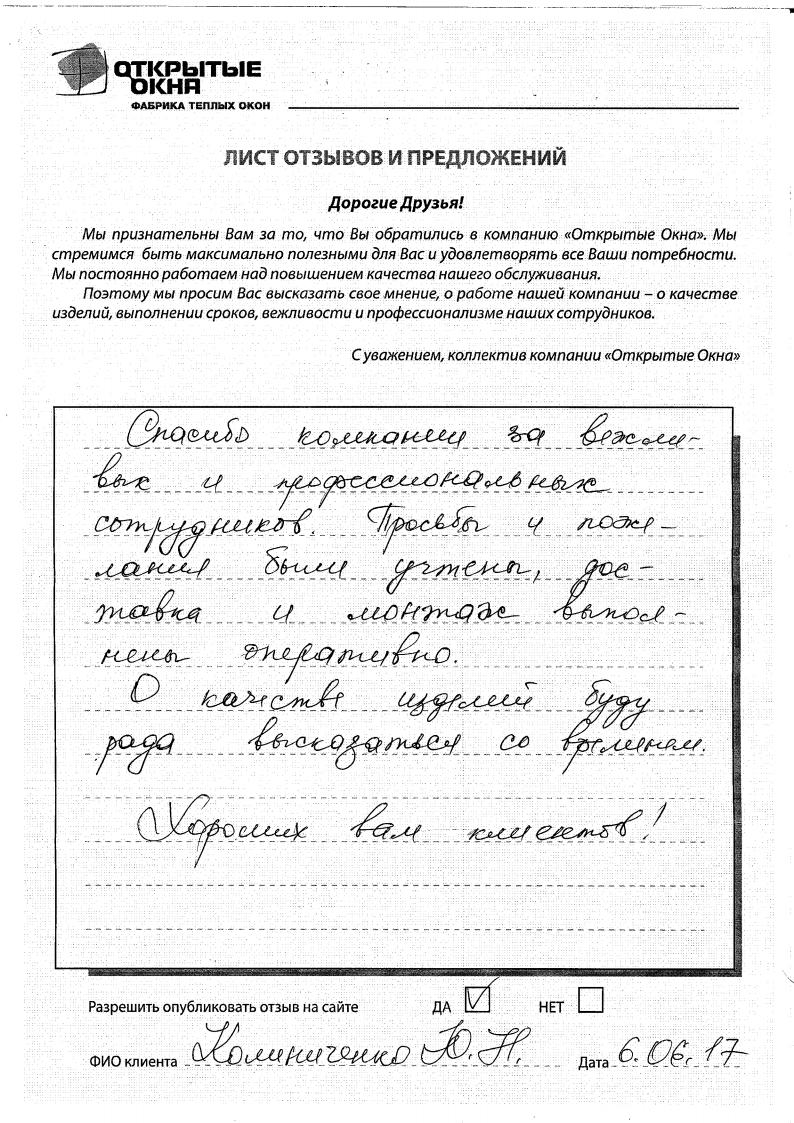 ОТКРЫТЫЕ
ОКНА
ФАБРИКА ТЕПЛЫХ ОКОН
ЛИСТ ОТЗЫВОВ И ПРЕДЛОЖЕНИЙ
Дорогие Друзья!
Мы признательны Вам за то, что Вы обратились в компанию «Открытые Окна». Мы
стремимся быть максимально полезными для Вас и удовлетворять все Ваши потребности.
Мы постоянно работаем над повышением качества нашего обслуживания.
Поэтому мы просим Вас высказать свое мнение, о работе нашей компании – о качестве
изделий, выполнении сроков, вежливости и профессионализме наших сотрудников.
С уважением, коллектив компании «Открытые Окна»
Спасибо компании за вежли-
вых и профессиональных
сотрудников. Просьбы и поже-
лания были учтены, дос-
тавка и монтаж выпол-
нены оперативно.
О качестве изделий буду
рада высказаться со временем.
Хороших вам клиентов!
Разрешить опубликовать отзыв на сайте ДА НЕТ
ФИО клиента Калиниченко Ю. Н. Дата 6.06.17